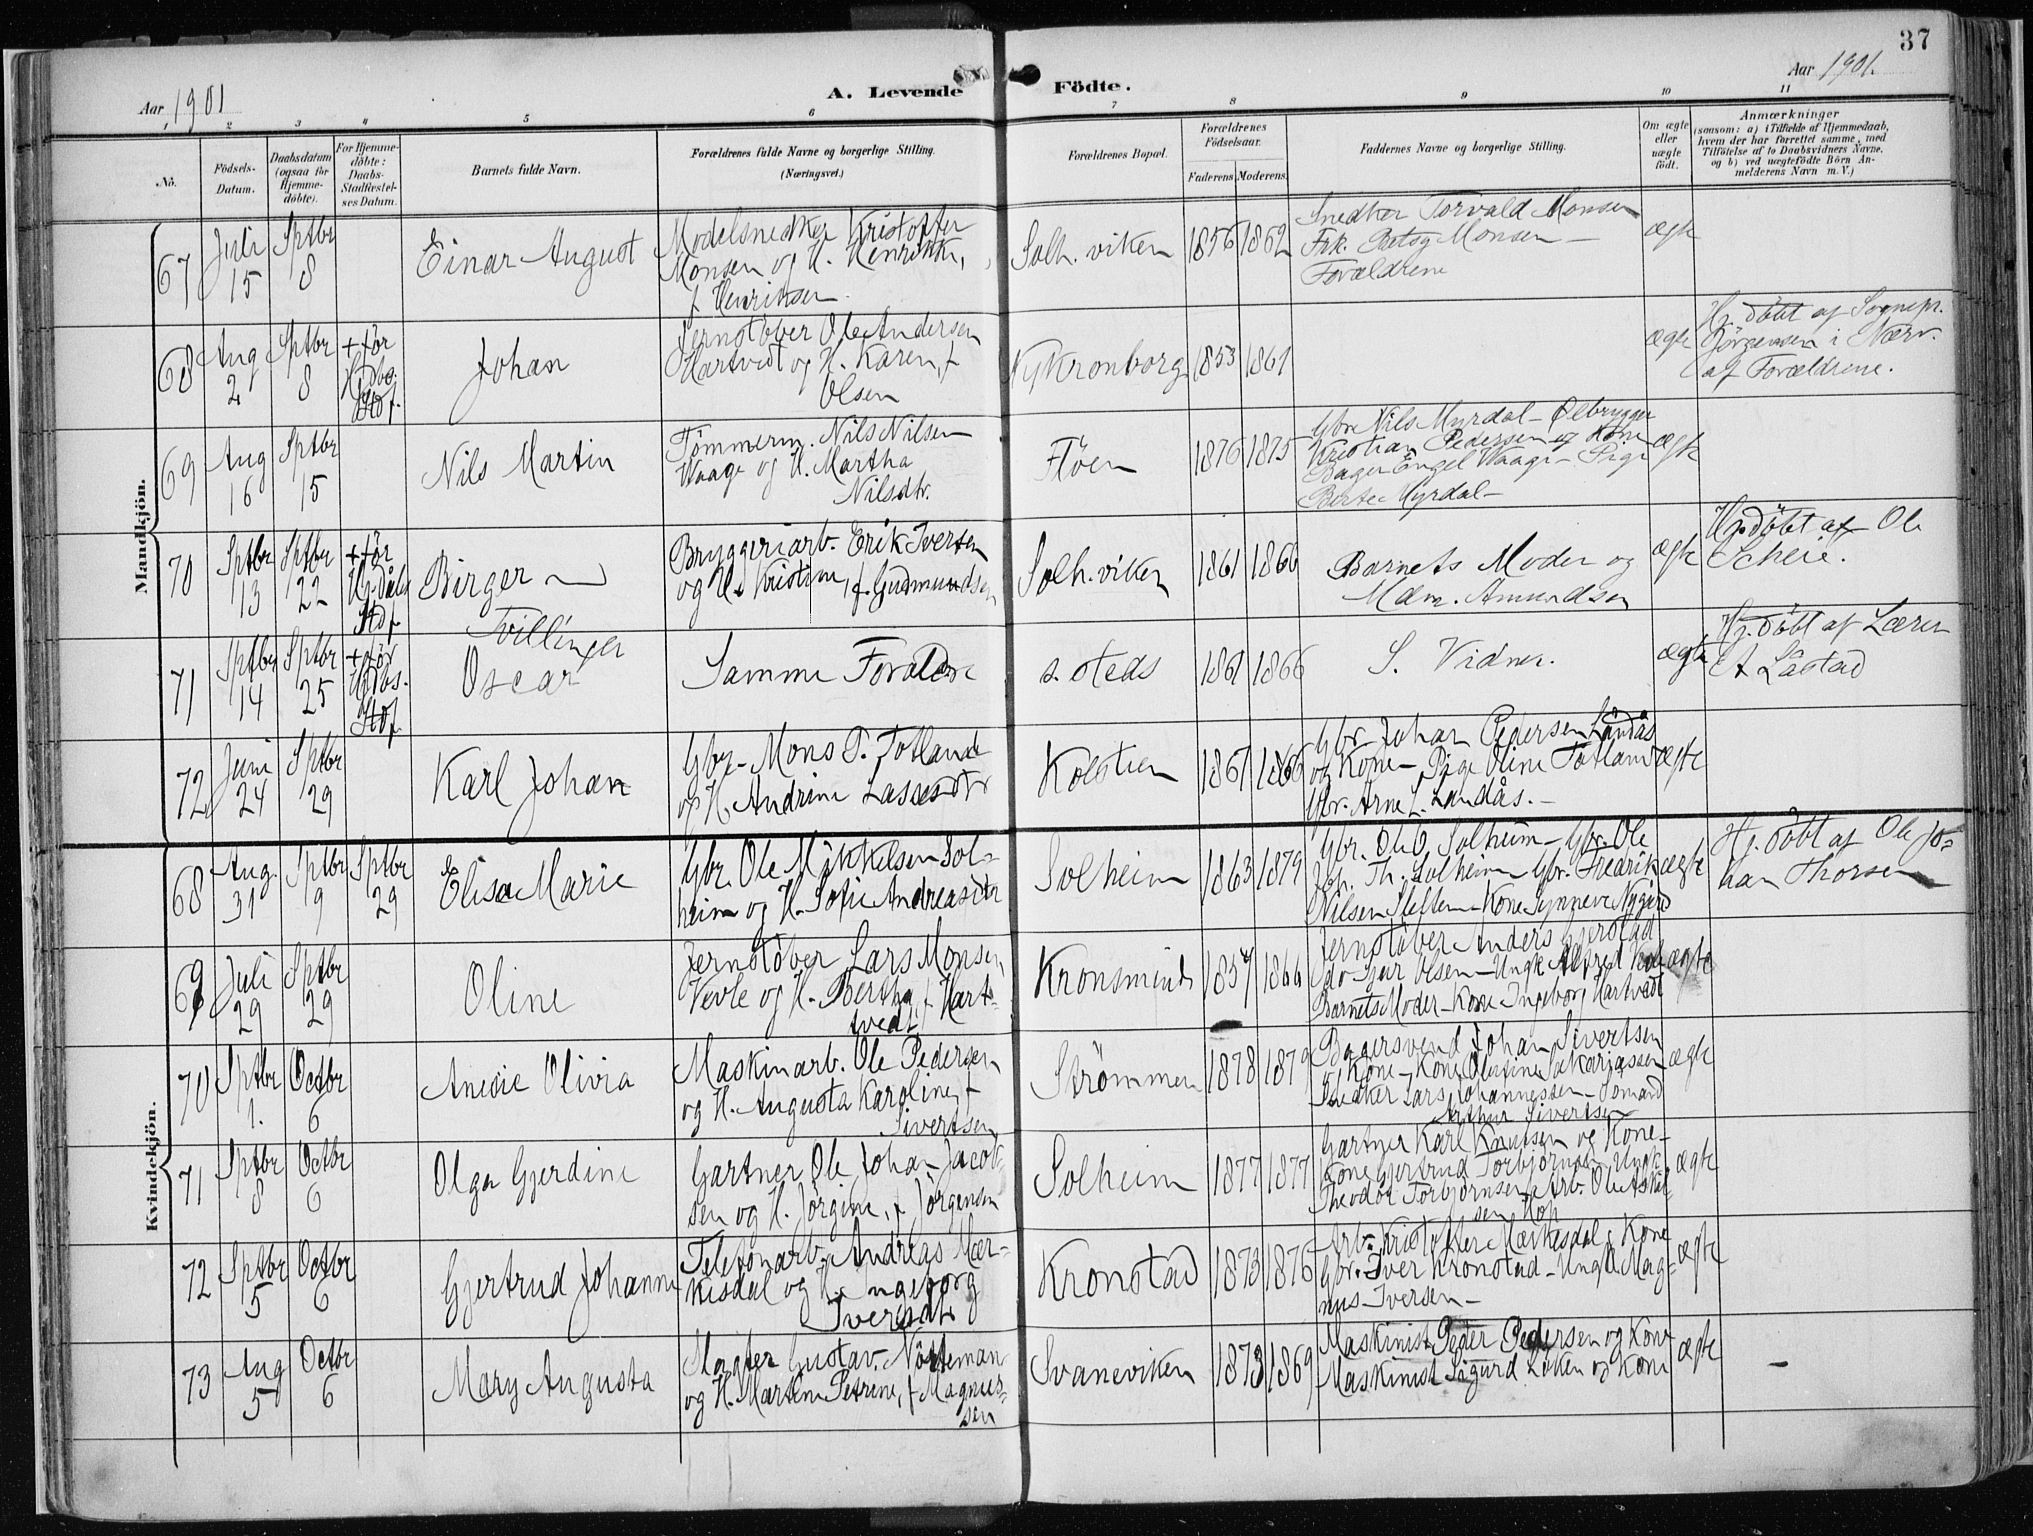 37
Aar 1901
A. Levende Födte.
Aar 1901.
1 2 3 4 5 6 7 8 9 10 11
No.
Födsels-
Datum.
Daabsdatum
(ogsaa for
Hjemme-
döbte).
For Hjemme-
döbte:
Daabs-
Stadfæstel-
ses Datum.
Barnets fulde Navn.
Forældrenes fulde Navne og borgerlige Stilling.
(Næringsvei.)
Forældrenes Bopæl.
Forældrenes
Födselsaar.
Faderens. Moderens.
Faddernes Navne og borgerlige Stilling.
Om ægte
eller
uægte
födt.
Anmærkninger
(saasom: a) i Tilfælde af Hjemmedaab,
hvem der har forrettet samme, med
Tilföielse af to Daabsvidners Navne,
og b) ved uægtefödte Börn An-
melderens Navn m. V.)
Mandkjön.
67
Juli
15
Sptbr
8
Einar August
Modelsnedker Kristoffer
Monsen og H. Henrikke,
f. Henriksen
Solh. viken
1856
1862
Snedker Torvald Monsen
Frk. Betsy Monsen –
Forældrene
ægte
68
Aug
2
Sptbr
8
+ før
Stdf.
Johan
Jernstøber Ole Andersen
Hartvedt og H. Karen, f
Olsen
NyKronborg
1853
1861
ægte
Hj. döbt af Sognepr.
Jörgensen i Nærv.
af Forældrene.
69
Aug
16
Sptbr
15
Nils Martin
Tömmerm. Nils Nilsen
Waage og H. Martha
Nilsdtr.
Flöen
1876
1875
Gbr Nils Myrdal – Ölbrygger
Kristian Pedersen og Kone
Bager Engel Waage – Pige
Berte Myrdal –
ægte
70
Sptbr
13
Sptbr
22
+ før
Stdf
Birger
Tvillinger
Bryggeriarb. Erik Iversen
og H. Kristine, f. Gudmundsen
Solh. viken
1861
1866
Barnets Moder og
Mdm. Amundsen
ægte
Hj. döbt af Ole
Scheie.
71
Sptbr
14
Sptbr
25
+ før
Stdf
Oscar
Samme Forældre
s. steds
1861
1866
S. Vidner.
ægte
Hj. döbt af Lærer
A Låstad
72
Juni
24
Sptbr
29
Karl Johan
Gbr – Mons T. Totland
og H. Andrine Lassesdtr
Kolstien
1867
1866
Gbr Johan Pedersen Låndås
og Kone – Pige Oline Totland
Gbr. Arne L. Landås. –
ægte
Kvindekjön.
68
Aug.
31
Sptbr
9
Sptbr
29
Elisa Marie
Gbr. Ole Mikkelsen Sol-
heim og H. Sofie Andreasdtr
Solheim
1863
1879
Gbr. Ole O. Solheim – Gbr. Ole
Joh. Th. Solheim Gbr. Fredrik
Nilsen Sletten – Kone Synneve Nygård
ægte
Hj. döbt af Ole Jo-
han Thorsen
69
Juli
29
Sptbr
29
Oline
Jernstöber Lars Monsen
Vevle og H. Bertha, f. Hart-
vedt
Kronsminde
1857
1866
Jernstöber Anders Gjerstad
do Olsen – Ungk Alfred
Barnets Moder – Kone Ingeborg Hartvedt
ægte
70
Sptbr
1.
Octbr
6
Anesie Olivia
Maskinarb. Ole Pedersen
og H. Augusta Karoline, f
Sivertsen
Strömmen
1878
1879
Bagersvend Johan Sivertsen
& Kone – Kone Olufine Sakariassen
Snedker Lars Johannessen – Sömand
Arthur Sivertsen
ægte
71
Sptbr
8
Octbr
6
Olga Gjerdine
Gartner Ole Johan Jacob-
sen og H. Jörgine, f Jörgensen
Solheim
1877
1877
Gartner Karl Knutsen og Kone –
Kone Gjertrud Torbjörnsen – Ungk
Theodor Torbjörnsen – Arb. Ole Askil-
sen Hop
ægte
72
Sptbr
5
Octbr
6
Gjertrud Johanne
Telefonarb. Andreas Mær-
kesdal og H. Ingeborg
Iversdtr
Kronstad
1873
1876
Arb. Kristoffer Mærkesdal & Kone
Gbr. Iver Kronstad – Ungk Mag-
nus Iversen –
ægte
73
Aug
5
Octbr
6
Mary Augusta
Slagter Gustav Nösteman
og H. Marthe Petrine, f Magnus-
sen
Svaneviken
1873
1869
Maskinist Peder Pedersen og Kone
Maskinist Sigurd Löken og Kone
ægte
–